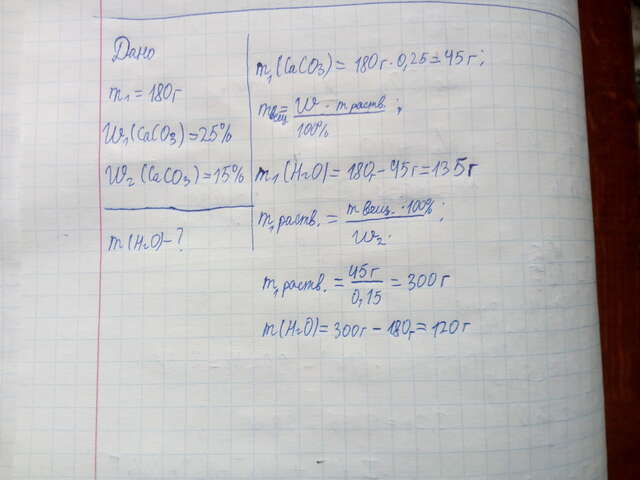 Дано
m1 = 180г
W1(CaCO3)=25%
W2(CaCO3)=15%
m(H2O)-?
m1(CaCO3) = 180г · 0,25 = 45г;
mвещ = W · m раств. / 100% ;
m1(H2O) = 180г - 45г = 135г
m1 раств. = m вещ. · 100% / W2 ;
m1 раств. = 45г / 0,15 = 300г
m(H2O) = 300г - 180г = 120г